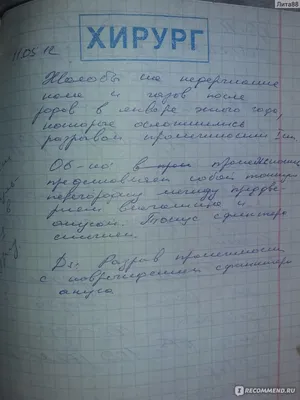 Лита88
11.05.12
ХИРУРГ
Жалобы на недержание
кала и газов после
родов в январе этого года,
которые осложнились
разрывом промежности
Об-но: в промежность
представляет собой тонкую
перегородку между преддве-
рием влагалища и
анусом. Тонус сфинктера
снижен
Ds: Разрыв промежности
с повреждением сфинктера
ануса
RECOMMEND.RU